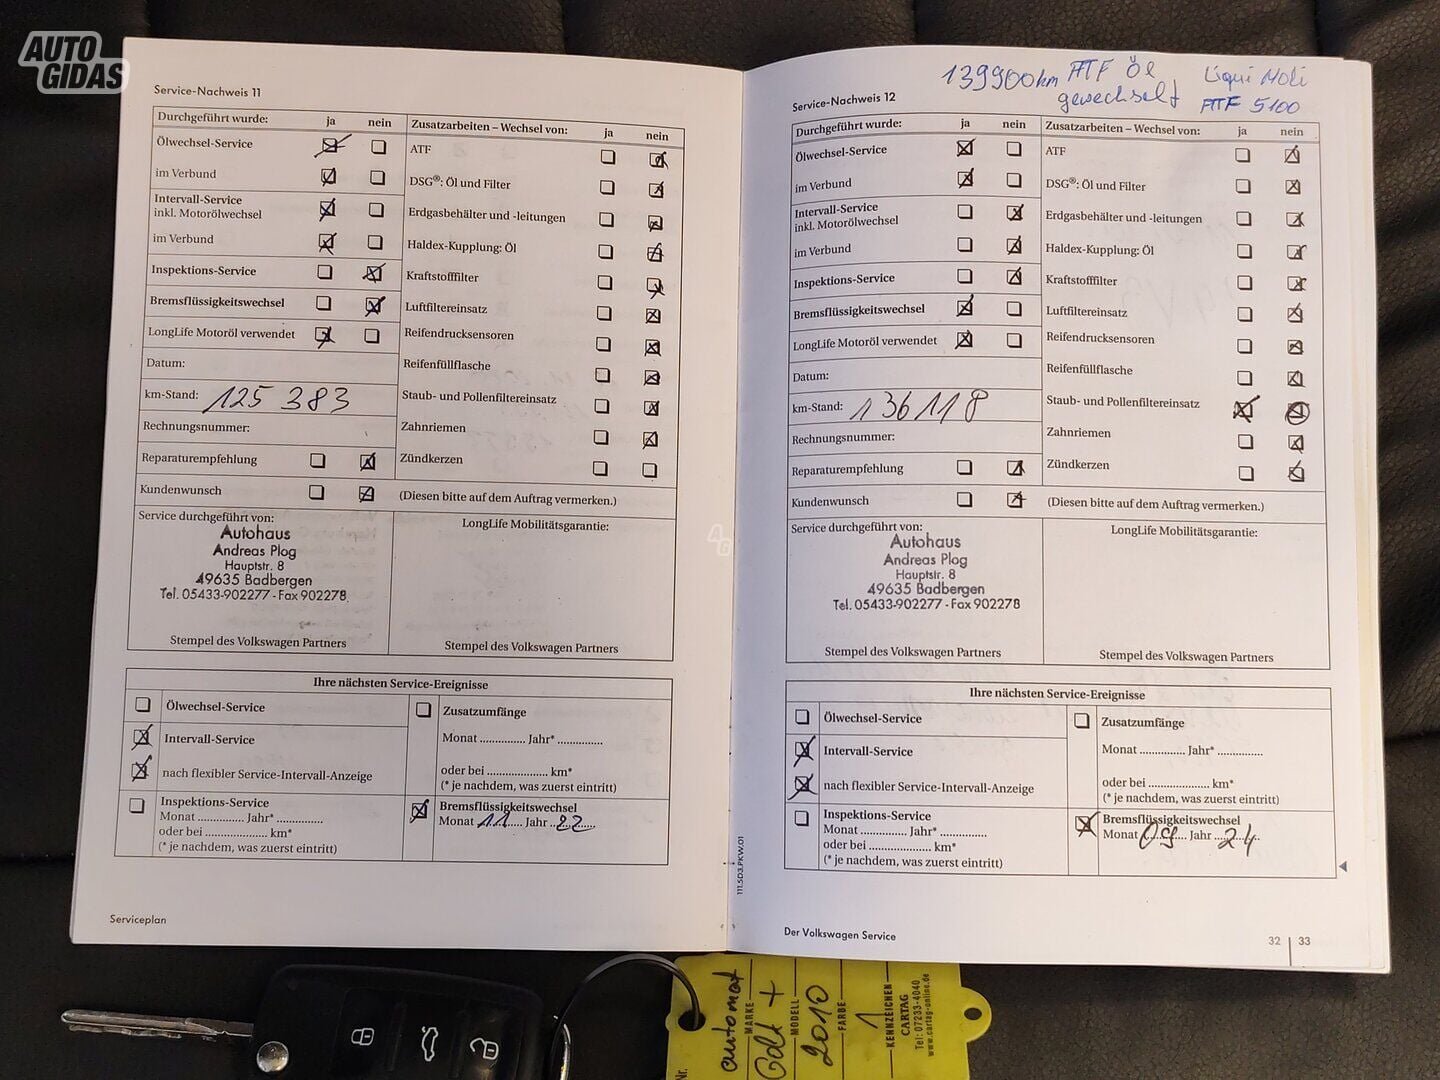 AUTO
GIDAS
Service-Nachweis 11
Durchgeführt wurde: ja nein
Ölwechsel-Service
im Verbund
Intervall-Service
inkl. Motorölwechsel
im Verbund
Inspektions-Service
Bremsflüssigkeitswechsel
LongLife Motoröl verwendet
Datum:
km-Stand: 125 383
Rechnungsnummer:
Reparaturempfehlung
Kundenwunsch
Zusatzarbeiten – Wechsel von: ja nein
ATF
DSG®: Öl und Filter
Erdgasbehälter und -leitungen
Haldex-Kupplung: Öl
Kraftstofffilter
Luftfiltereinsatz
Reifendrucksensoren
Reifenfüllflasche
Staub- und Pollenfiltereinsatz
Zahnriemen
Zündkerzen
(Diesen bitte auf dem Auftrag vermerken.)
Service durchgeführt von:
Autohaus
Andreas Plog
Hauptstr. 8
49635 Badbergen
Tel. 05433-902277 - Fax 902278
Stempel des Volkswagen Partners
LongLife Mobilitätsgarantie:
Stempel des Volkswagen Partners
Ihre nächsten Service-Ereignisse
Ölwechsel-Service
Intervall-Service
nach flexibler Service-Intervall-Anzeige
Inspektions-Service
Monat .............. Jahr* ..............
oder bei ..................... km*
(* je nachdem, was zuerst eintritt)
Zusatzumfänge
Monat .............. Jahr* ..............
oder bei ..................... km*
(* je nachdem, was zuerst eintritt)
Bremsflüssigkeitswechsel
Monat 11 Jahr 22
Serviceplan
139900km ATF Öl
gewechselt
Liqui Moli
ATF 5100
Service-Nachweis 12
Durchgeführt wurde: ja nein
Ölwechsel-Service
im Verbund
Intervall-Service
inkl. Motorölwechsel
im Verbund
Inspektions-Service
Bremsflüssigkeitswechsel
LongLife Motoröl verwendet
Datum:
km-Stand: 136118
Rechnungsnummer:
Reparaturempfehlung
Kundenwunsch
Zusatzarbeiten – Wechsel von: ja nein
ATF
DSG®: Öl und Filter
Erdgasbehälter und -leitungen
Haldex-Kupplung: Öl
Kraftstofffilter
Luftfiltereinsatz
Reifendrucksensoren
Reifenfüllflasche
Staub- und Pollenfiltereinsatz
Zahnriemen
Zündkerzen
(Diesen bitte auf dem Auftrag vermerken.)
Service durchgeführt von:
Autohaus
Andreas Plog
Hauptstr. 8
49635 Badbergen
Tel. 05433-902277 - Fax 902278
Stempel des Volkswagen Partners
LongLife Mobilitätsgarantie:
Stempel des Volkswagen Partners
Ihre nächsten Service-Ereignisse
Ölwechsel-Service
Intervall-Service
nach flexibler Service-Intervall-Anzeige
Inspektions-Service
Monat .............. Jahr* ..............
oder bei ..................... km*
(* je nachdem, was zuerst eintritt)
Zusatzumfänge
Monat .............. Jahr* ..............
oder bei ..................... km*
(* je nachdem, was zuerst eintritt)
Bremsflüssigkeitswechsel
Monat 09 Jahr 24
111.5D3.PKW.01
Der Volkswagen Service
32 | 33
Nr.
automat
MARKE
Golf +
MODELL
2010
FARBE
1
KENNZEICHEN
CARTAG
Tel: 07233-4040
www.cartag-online.de